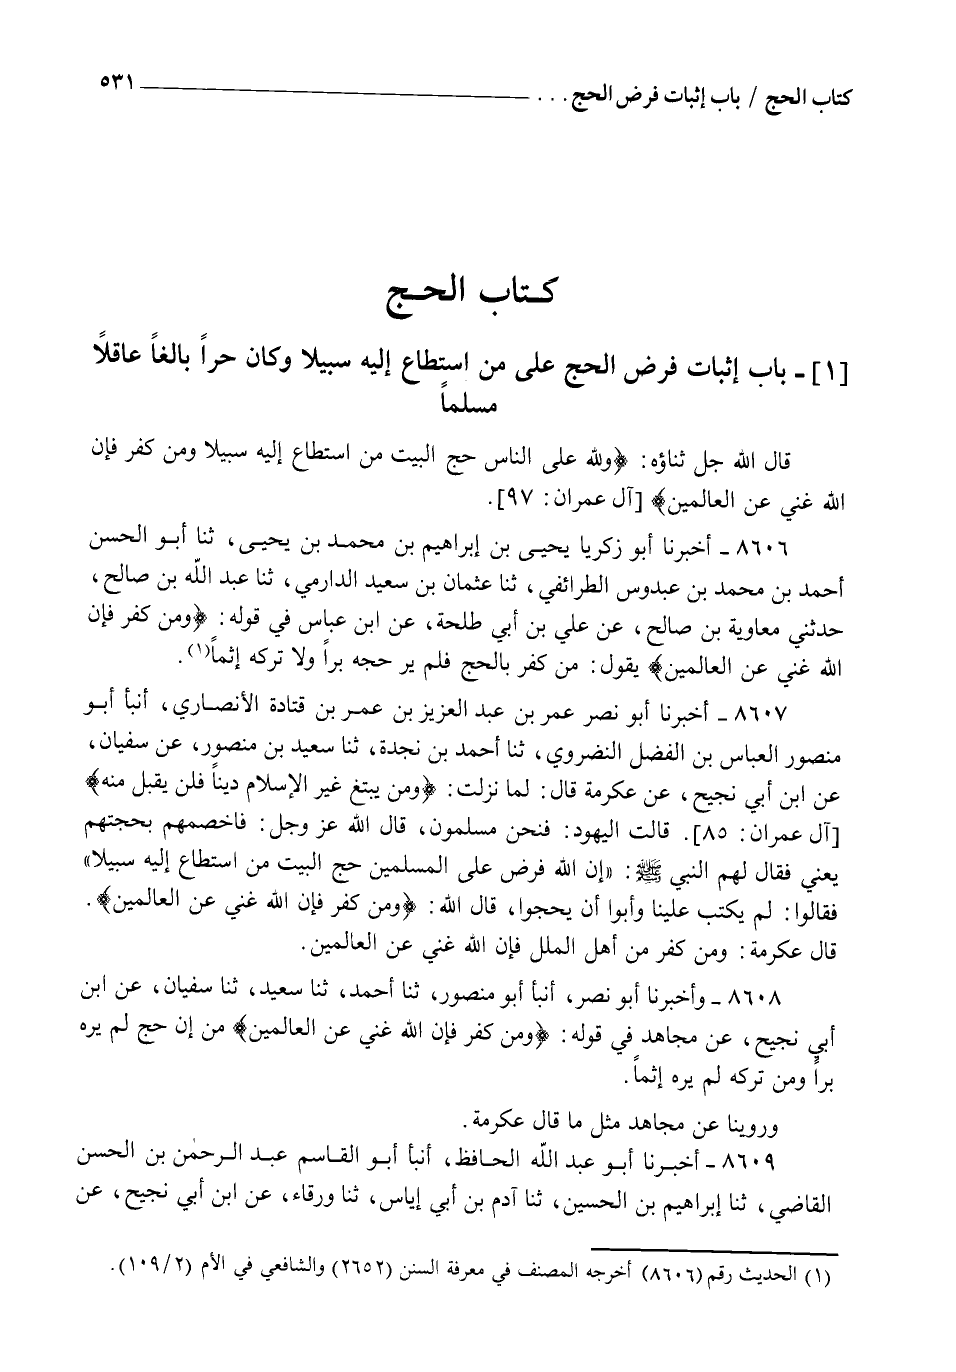 كتاب الحج / باب إثبات فرض الحج . . . ٥٣١
كتاب الحج
[١] ـ باب إثبات فرض الحج على من استطاع إليه سبيلا وكان حراً بالغاً عاقلاً
مسلماً
قال الله جل ثناؤه: ﴿ولله على الناس حج البيت من استطاع إليه سبيلا ومن كفر فإن
الله غني عن العالمين﴾ [آل عمران: ٩٧].
٨٦٠٦ ـ أخبرنا أبو زكريا يحيى بن إبراهيم بن محمد بن يحيى، ثنا أبو الحسن
أحمد بن محمد بن عبدوس الطرائفي، ثنا عثمان بن سعيد الدارمي، ثنا عبد الله بن صالح،
حدثني معاوية بن صالح، عن علي بن أبي طلحة، عن ابن عباس في قوله: ﴿ومن كفر فإن
الله غني عن العالمين﴾ يقول: من كفر بالحج فلم ير حجه براً ولا تركه إثماً(١).
٨٦٠٧ ـ أخبرنا أبو نصر عمر بن عبد العزيز بن عمر بن قتادة الأنصاري، أنبأ أبو
منصور العباس بن الفضل النضروي، ثنا أحمد بن نجدة، ثنا سعيد بن منصور، عن سفيان،
عن ابن أبي نجيح، عن عكرمة قال: لما نزلت: ﴿ومن يبتغ غير الإسلام ديناً فلن يقبل منه﴾
[آل عمران: ٨٥]. قالت اليهود: فنحن مسلمون، قال الله عز وجل: فاخصمهم بحجتهم
يعني فقال لهم النبي ﷺ: «إن الله فرض على المسلمين حج البيت من استطاع إليه سبيلا»
فقالوا: لم يكتب علينا وأبوا أن يحجوا، قال الله: ﴿ومن كفر فإن الله غني عن العالمين﴾.
قال عكرمة: ومن كفر من أهل الملل فإن الله غني عن العالمين.
٨٦٠٨ ـ وأخبرنا أبو نصر، أنبأ أبو منصور، ثنا أحمد، ثنا سعيد، ثنا سفيان، عن ابن
أبي نجيح، عن مجاهد في قوله: ﴿ومن كفر فإن الله غني عن العالمين﴾ من إن حج لم يره
براً ومن تركه لم يره إثماً.
وروينا عن مجاهد مثل ما قال عكرمة.
٨٦٠٩ ـ أخبرنا أبو عبد الله الحافظ، أنبأ أبو القاسم عبد الرحمٰن بن الحسن
القاضي، ثنا إبراهيم بن الحسين، ثنا آدم بن أبي إياس، ثنا ورقاء، عن ابن أبي نجيح، عن
(١) الحديث رقم (٨٦٠٦) أخرجه المصنف في معرفة السنن (٢٦٥٢) والشافعي في الأم (٢/ ١٠٩).